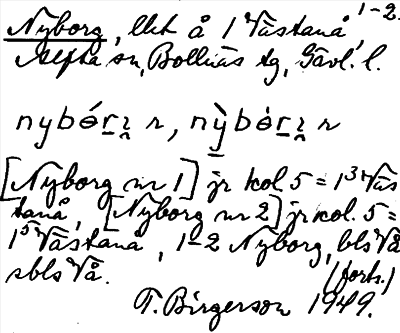 Nyborg, llt å 1 Västanå, 1-2.
Alfta sn, Bollnäs tg, Gävl. l.
[Nyborg nr 1] jr kol. 5 = 1³ Väs
tanå, [Nyborg nr 2] jr kol. 5 =
1⁵ Västanå, 1-2 Nyborg, bls Vå
sbls Vå. (forts.)
T. Birgerson 1949.